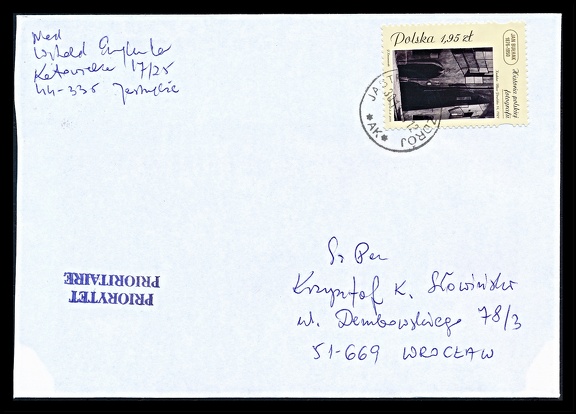 Nad
Witold
Katowicka 17/25
44-335 Jastrzębie
Polska 1,95 zł
JAN BUŁHAK
1876-1950
Historia polskiej
fotografii
JAST ZDRÓJ
* AK *
Sz Pan
Krzysztof K. Słowiński
ul. Dembowskiego 78/3
51-669 WROCŁAW
PRIORYTET
PRIORITAIRE